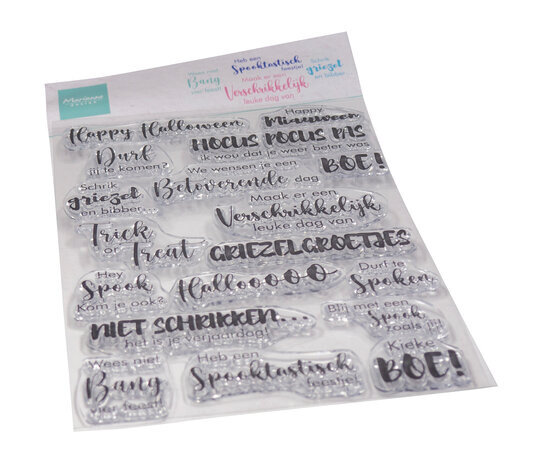 Marianne
DESIGN
Wees niet
Bang
vier feest!
Heb een
Spooktastisch
feestje!
Maak er een
Verschrikkelijk
leuke dag van
Schrik
griezel
en bibber
Happy Halloween
Happy
Miauween
HOCUS POCUS PAS
ik wou dat je weer beter was
Durf
jij te komen?
We wensen je een
Betoverende dag
BOE!
Schrik
griezel
en bibber...
Maak er een
Verschrikkelijk
leuke dag van
Trick
or
Treat
GRIEZELGROETJES
Hey
Spook
Kom je ook?
HallooOOO
Durf te
Spoken
NIET SCHRIKKEN...
het is je verjaardag!
Blij met een
Spook
zoals jij!
Wees niet
Bang
vier feest!
Heb een
Spooktastisch
feestje!
Kieke
BOE!